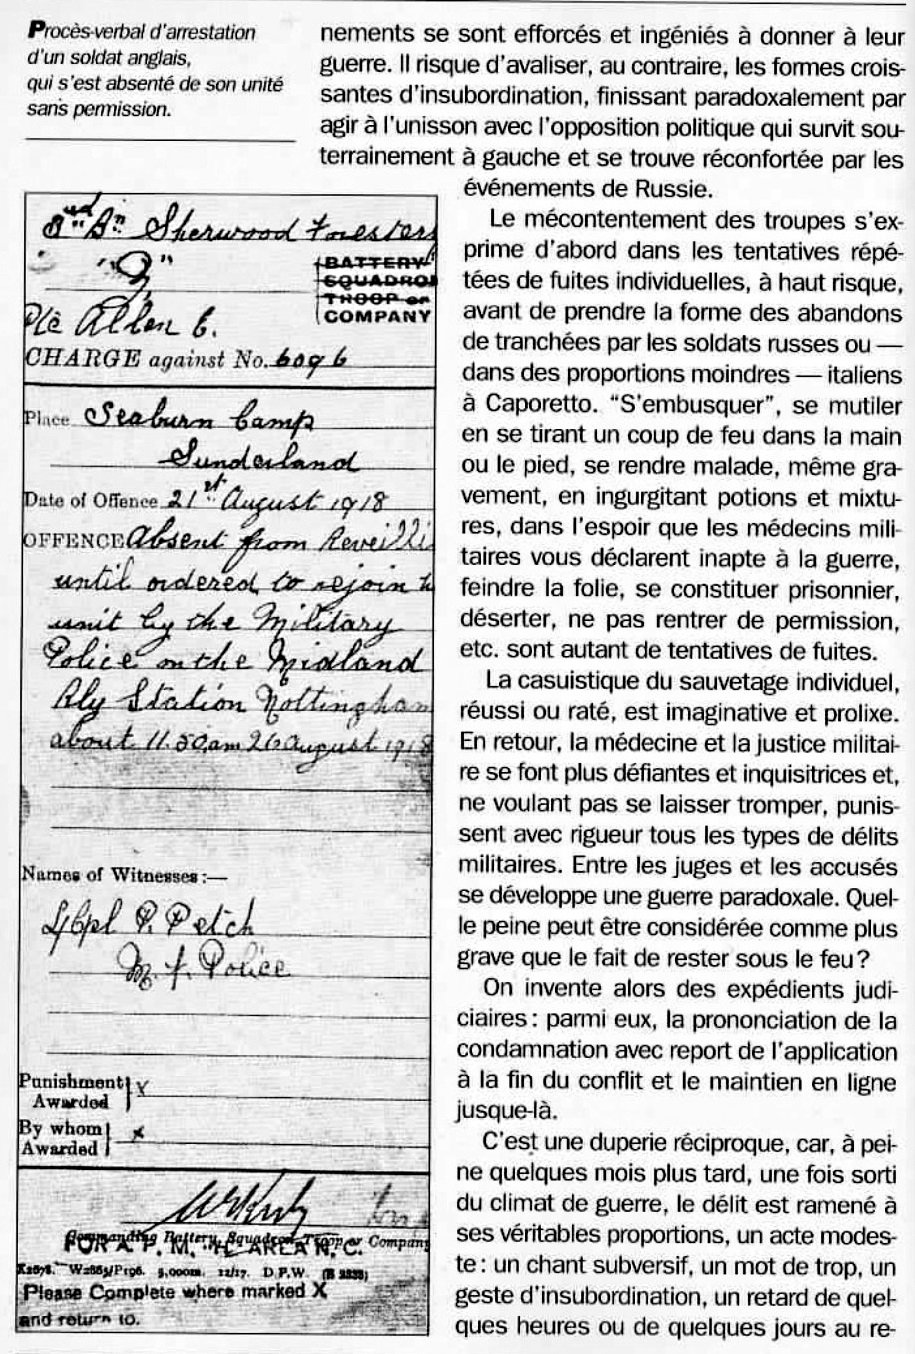 Procès-verbal d'arrestation
d'un soldat anglais,
qui s'est absenté de son unité
sans permission.
nements se sont efforcés et ingéniés à donner à leur
guerre. Il risque d'avaliser, au contraire, les formes crois-
santes d'insubordination, finissant paradoxalement par
agir à l'unisson avec l'opposition politique qui survit sou-
terrainement à gauche et se trouve réconfortée par les
événements de Russie.
Le mécontentement des troupes s'ex-
prime d'abord dans les tentatives répé-
tées de fuites individuelles, à haut risque,
avant de prendre la forme des abandons
de tranchées par les soldats russes ou —
dans des proportions moindres — italiens
à Caporetto. “S'embusquer”, se mutiler
en se tirant un coup de feu dans la main
ou le pied, se rendre malade, même gra-
vement, en ingurgitant potions et mixtu-
res, dans l'espoir que les médecins mili-
taires vous déclarent inapte à la guerre,
feindre la folie, se constituer prisonnier,
déserter, ne pas rentrer de permission,
etc. sont autant de tentatives de fuites.
La casuistique du sauvetage individuel,
réussi ou raté, est imaginative et prolixe.
En retour, la médecine et la justice militai-
re se font plus défiantes et inquisitrices et,
ne voulant pas se laisser tromper, punis-
sent avec rigueur tous les types de délits
militaires. Entre les juges et les accusés
se développe une guerre paradoxale. Quel-
le peine peut être considérée comme plus
grave que le fait de rester sous le feu?
On invente alors des expédients judi-
ciaires: parmi eux, la prononciation de la
condamnation avec report de l'application
à la fin du conflit et le maintien en ligne
jusque-là.
C'est une duperie réciproque, car, à pei-
ne quelques mois plus tard, une fois sorti
du climat de guerre, le délit est ramené à
ses véritables proportions, un acte modes-
te: un chant subversif, un mot de trop, un
geste d'insubordination, un retard de quel-
ques heures ou de quelques jours au re-
Bn Sherwood Foresters
BATTERY
SQUADRON
TROOP or
COMPANY
Pte Allen C.
CHARGE against No. 6096
Place Seaburn Camp
Sunderland
Date of Offence 21st August 1918
OFFENCE Absent from Reveille
until ordered to rejoin h
unit by the Military
Police on the Midland
Rly Station Nottingham
about 11.50am 26 August 1918
Names of Witnesses:—
L/Cpl P. Petch
M. F. Police
Punishment
Awarded } X
By whom
Awarded } x
Commanding Battery, Squadron, Troop or Company
FOR A. P. M. AREA N. C.
W2885/P196. 5,000m. 12/17. D.P.W.
Please Complete where marked X
and return to.